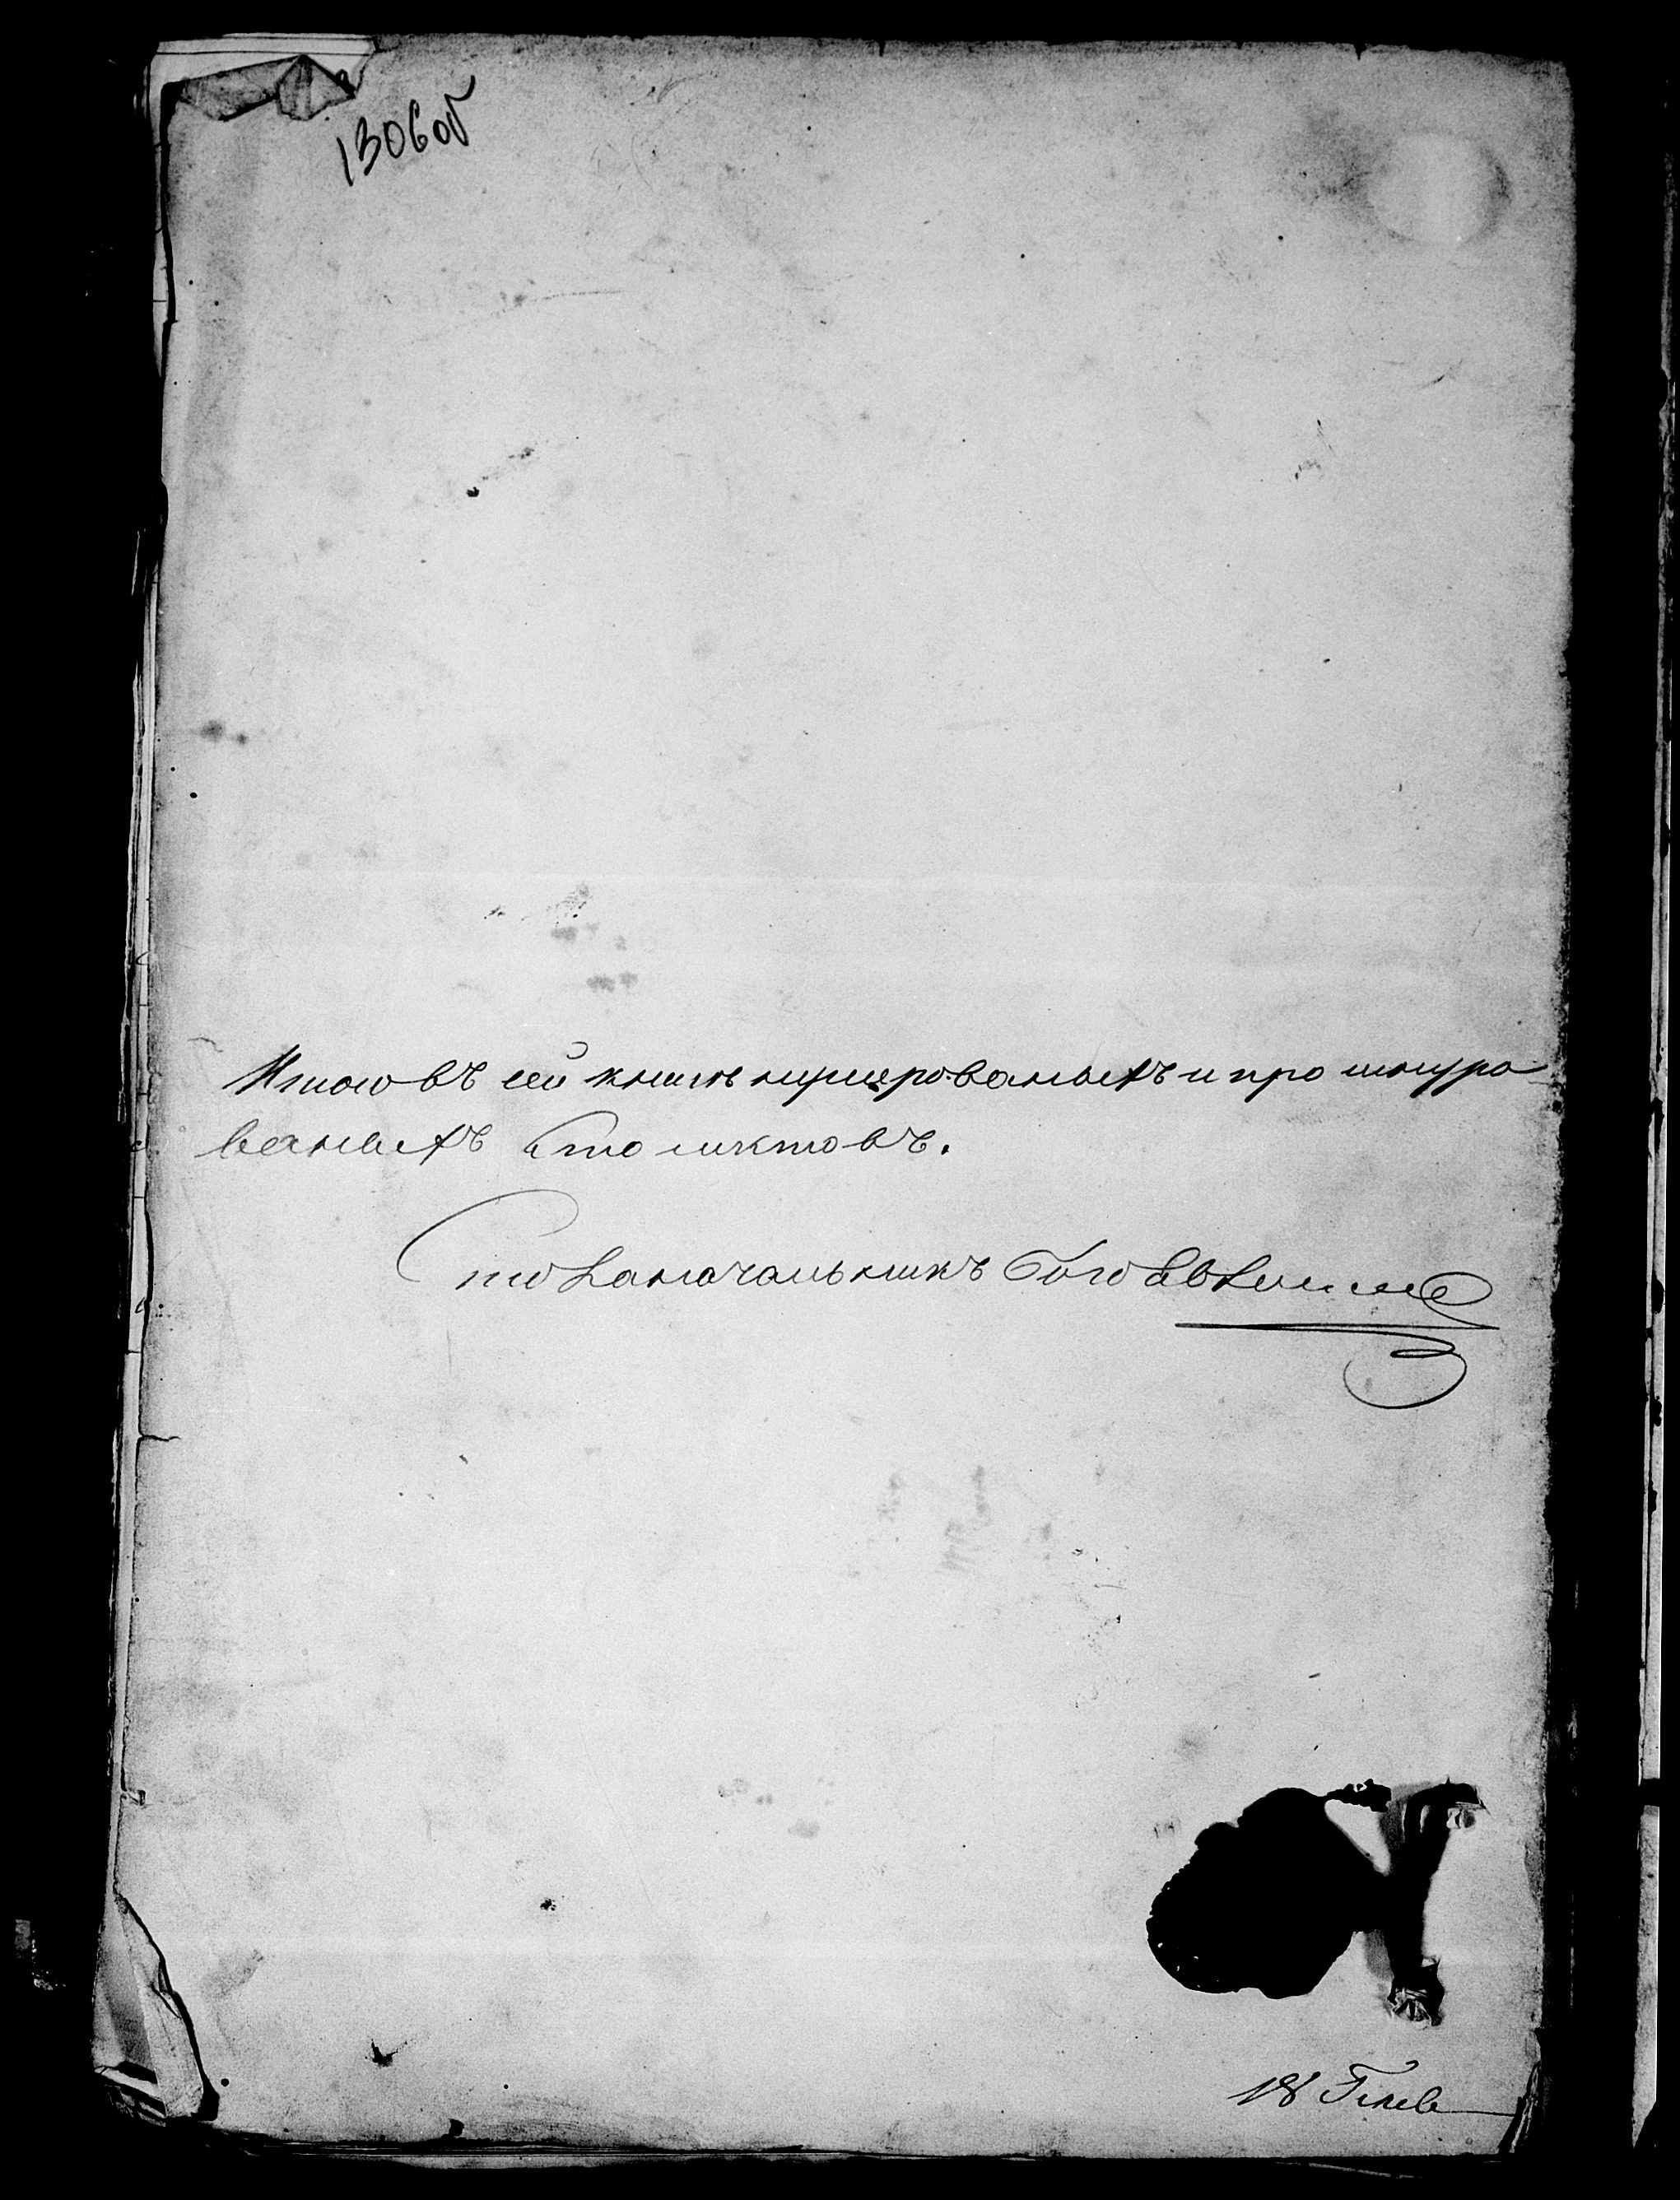 1306об
Итого въ сей книге нумерованыхъ и про шнуро
ваныхъ Сто листовъ.
Столоначальникъ
18